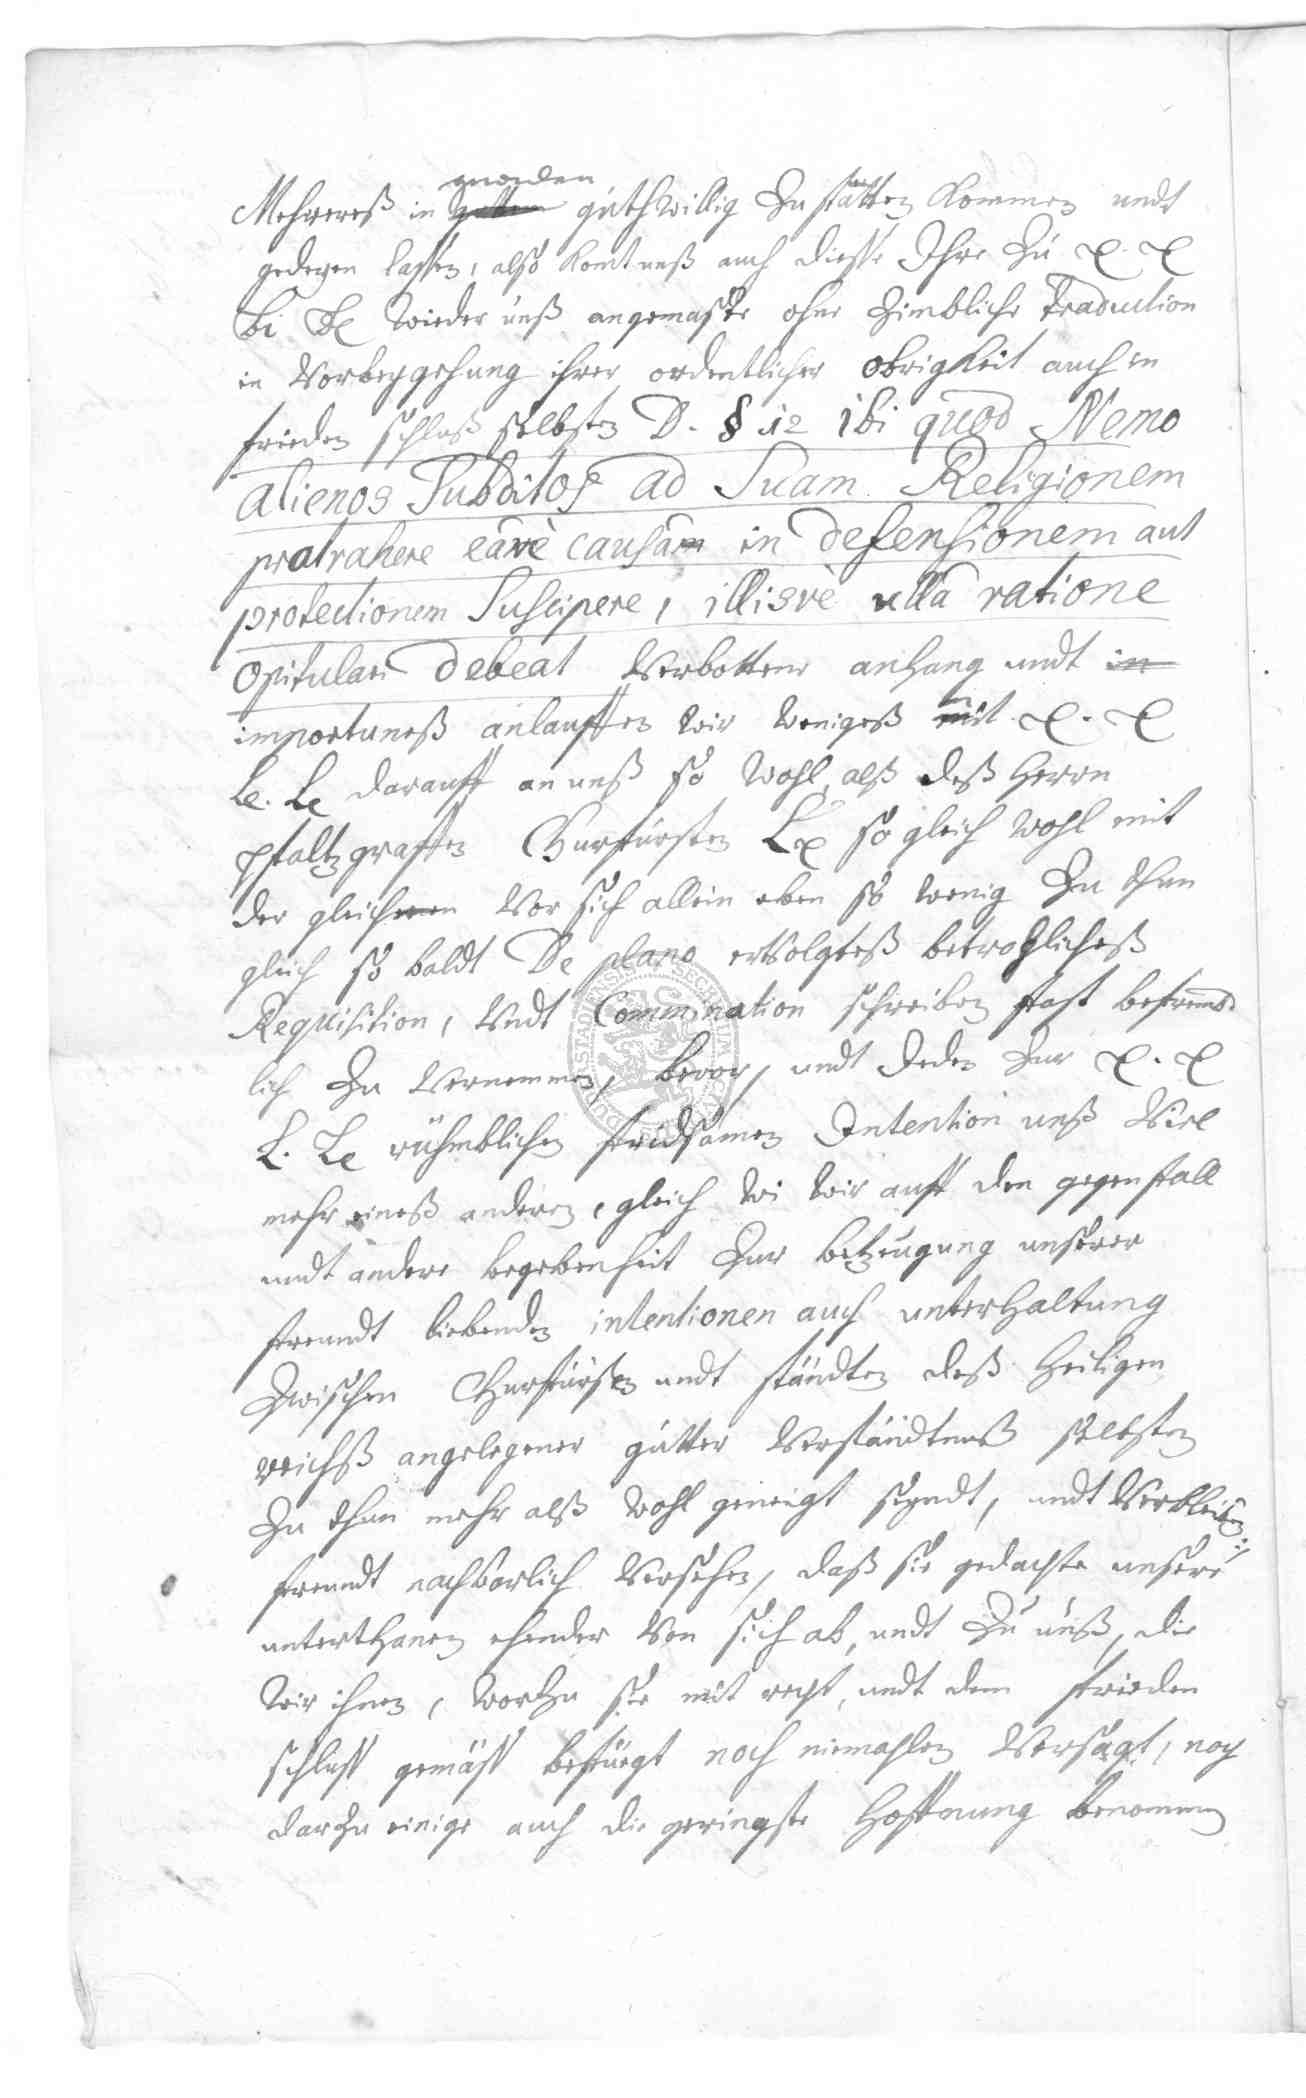 gnaden
Mehrereß in güthwillig zu statten kommen undt
gedeyen lassen, also komt unß auch dieße Ihre zu
wieder unß angemaste ohne zimbliche traduction
in Vorbeygehung ihrer ordentlicher obrigkeit auch in
frieden schluß selbsten D. § 12 ibi quod Nemo
alienos Subditos ad Suam Religionem
pratrahere eavè causam in defensionem aut
protectionem Suscipere, illisvè ulla ratione
opitulari debeat Verbottene anhang undt in
importuneß anlauffen wir wenigeß mit
Le. Le darauff an unß so wohl alß deß Herrn
pfaltzgraffen Churfürsten so gleich wohl mit
der gleichen Vor sich allein eben so wenig zu thun
gleich so baldt De plano erfolgteß betrohlicheß
Requisition, Undt Commination schreiben fast befremd
lich zu Vernemmen, bevor, undt
L. Le rühmblichen fridsamen Intention unß Viel
mehr eineß anderen, gleich wi wir auff den gegenfall
undt andere begebenheit zur betzeugung unserer
freundt liebenden intentionen auch unterhaltung
zwischen Churfürsten undt ständten deß Heiligen
reichß angelegener gutter Verständtnuß selbsten
zu thun mehr alß wohl geneigt seyndt, undt Verbleiben
freundt nachbarlich Versehen, daß sie gedachte unsere
unterthanen ehender Von sich ab, undt zu unß, die
wir ihnen, worzu sie mit recht, undt dem frieden
schluß gemäß befuegt noch niemahlen Versagt, noch
darzu einige auch die geringste Hoffnung benommen